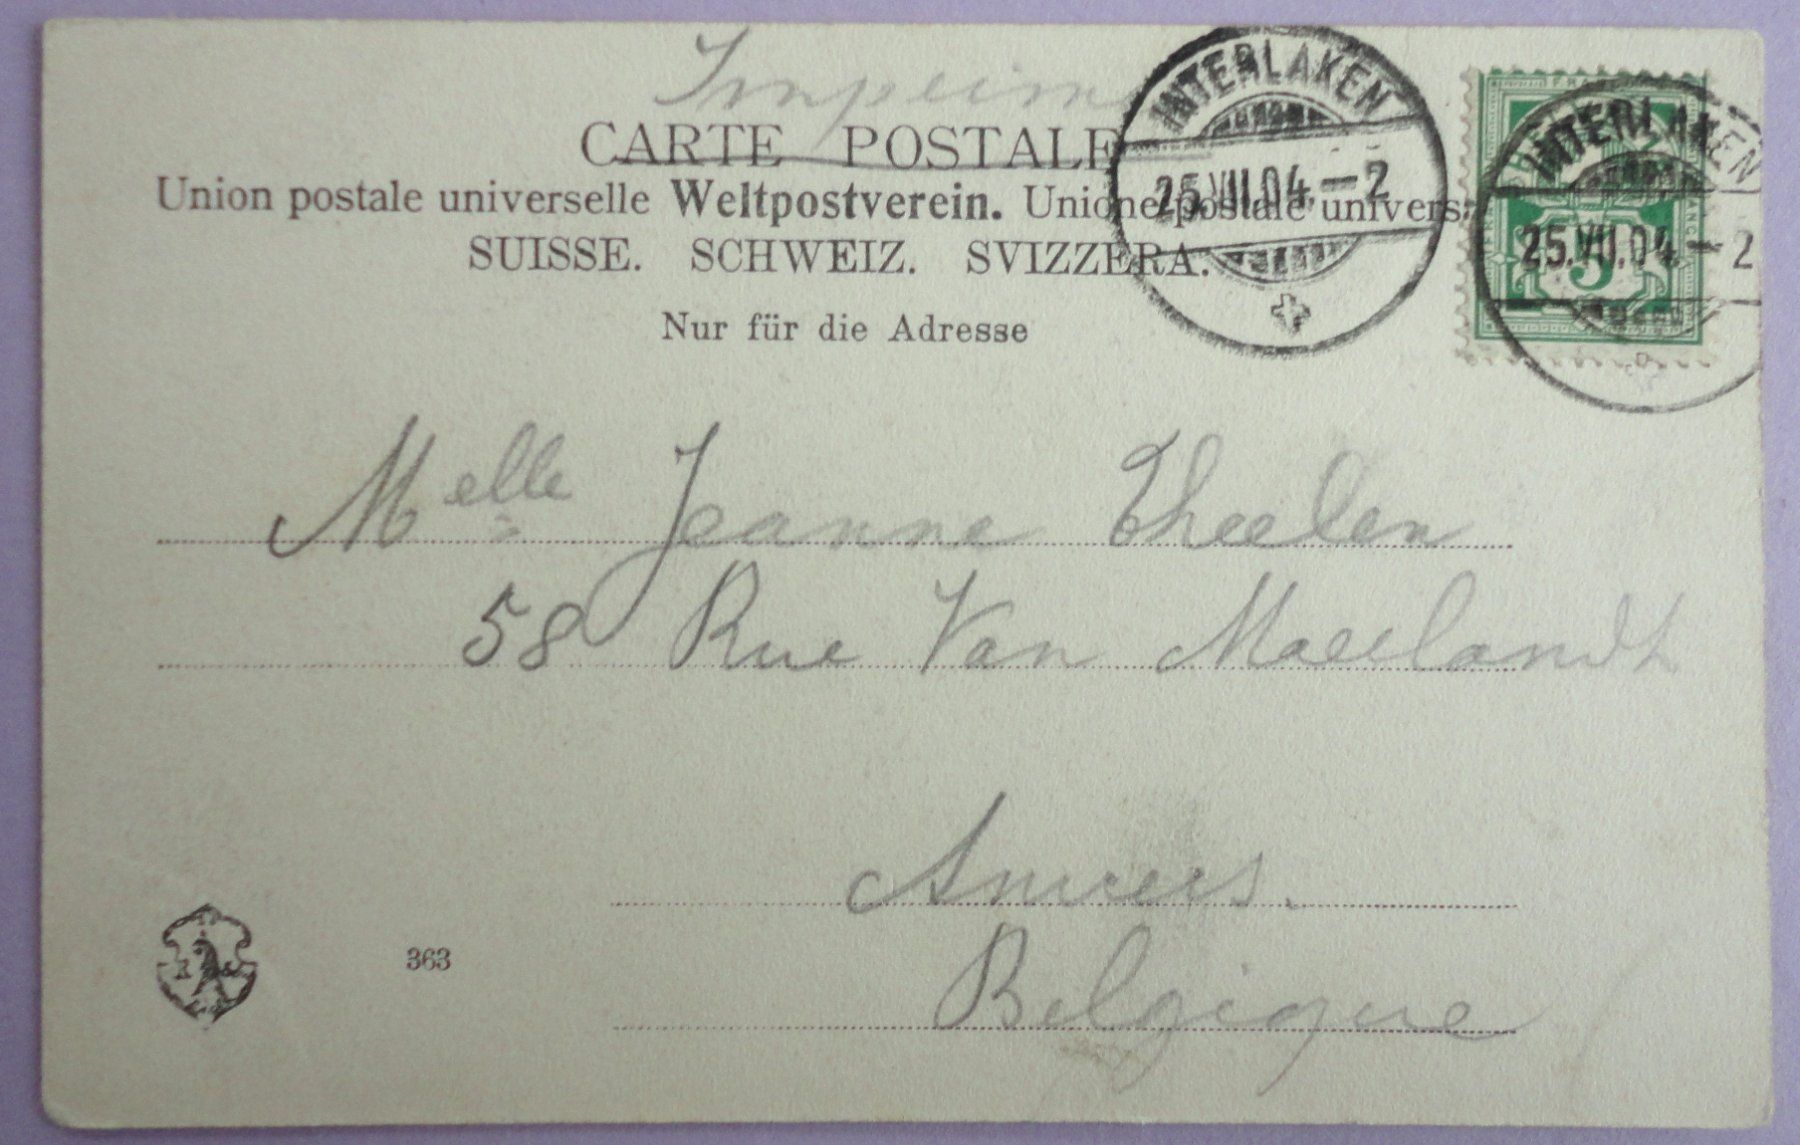 Imprimé
CARTE POSTALE
Union postale universelle Weltpostverein. Unione postale univers
SUISSE. SCHWEIZ. SVIZZERA.
Nur für die Adresse
INTERLAKEN
25.VII.04.–2
INTERLAKEN
25.VII.04.–2
5
Melle Jeanne Theelen
58 Rue Van Maerlandt
Anvers.
Belgique
363